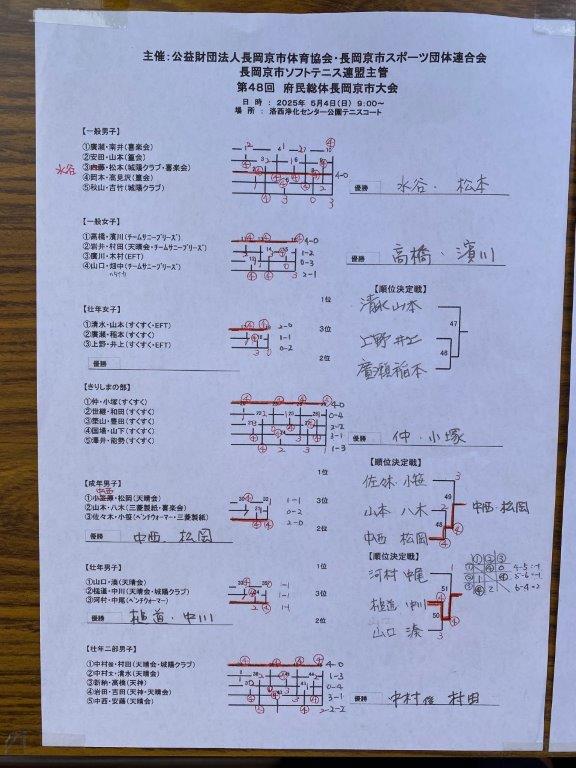 主催：公益財団法人長岡京市体育協会・長岡京市スポーツ団体連合会
長岡京市ソフトテニス連盟主管
第48回 府民総体長岡京市大会
日 時 : 2025年 5月4日(日) 9:00～
場 所 : 洛西浄化センター公園テニスコート
【一般男子】
①廣瀬・南井(喜楽会)
②安田・山本(篁会)
水谷 ③内藤・松本(城陽クラブ・喜楽会) 4-0
④岡本・高見沢(篁会)
⑤秋山・吉竹(城陽クラブ)
優勝 水谷・松本
【一般女子】
①高橋・濱川(チームサニーブリーズ) 4-0
②岩井・村田(天晴会・チームサニーブリーズ) 1-2
③廣川・木村(EFT) 0-3
④山口・畑中(チームサニーブリーズ) 2-1
優勝 高橋・濱川
【壮年女子】
①清水・山本(すくすく・EFT) 2-0
②廣瀬・稲本(すくすく) 1-1
③上野・井上(すくすく・EFT) 0-2
優勝
1位
3位
2位
【順位決定戦】
清水 山本
上野 井上
廣瀬 稲本
47
46
【きりしまの部】
①仲・小塚(すくすく) 4-0
②世継・和田(すくすく) 0-4
③栗山・豊田(すくすく) 2-2
④国場・山下(すくすく) 3-1
⑤澤井・能勢(すくすく) 1-3
優勝 仲・小塚
【成年男子】
中西
①小笹・松岡(天晴会) 1-1
②山本・八木(三菱製紙・喜楽会) 0-2
③佐々木・小笹(ベンチウォーマー・三菱製紙) 2-0
優勝 中西 松岡
1位
3位
2位
【順位決定戦】
佐々木 小笹 3
山本 八木 2
中西 松岡 ④
49
48
中西・松岡
【壮年男子】
①山口・湊(天晴会) 1-1
②植道・中川(天晴会・城陽クラブ) 1-1
③河村・中尾(ベンチウォーマー) 1-1
優勝 植道・中川
1位
3位
2位
【順位決定戦】
河村 中尾 1
植道 中川
山口 湊 3
51
50
① ② ③
4-5=-1
5-6=-1
6-4=2
【壮年二部男子】
①中村俊・村田(天晴会・城陽クラブ) 4-0
②中村文・清水(天晴会) 1-3
③新納・高橋(天神) 0-4
④岩田・吉田(天神・天晴会) 3-1
⑤中西・安藤(天晴会) 2-2
優勝 中村俊 村田